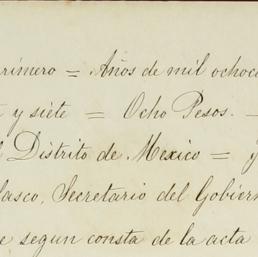 rimero = Años de mil ochoc
y siete = Ocho Pesos. —
Distrito de Mexico = y
lasco, Secretario del Gobiern
e segun consta de la acta